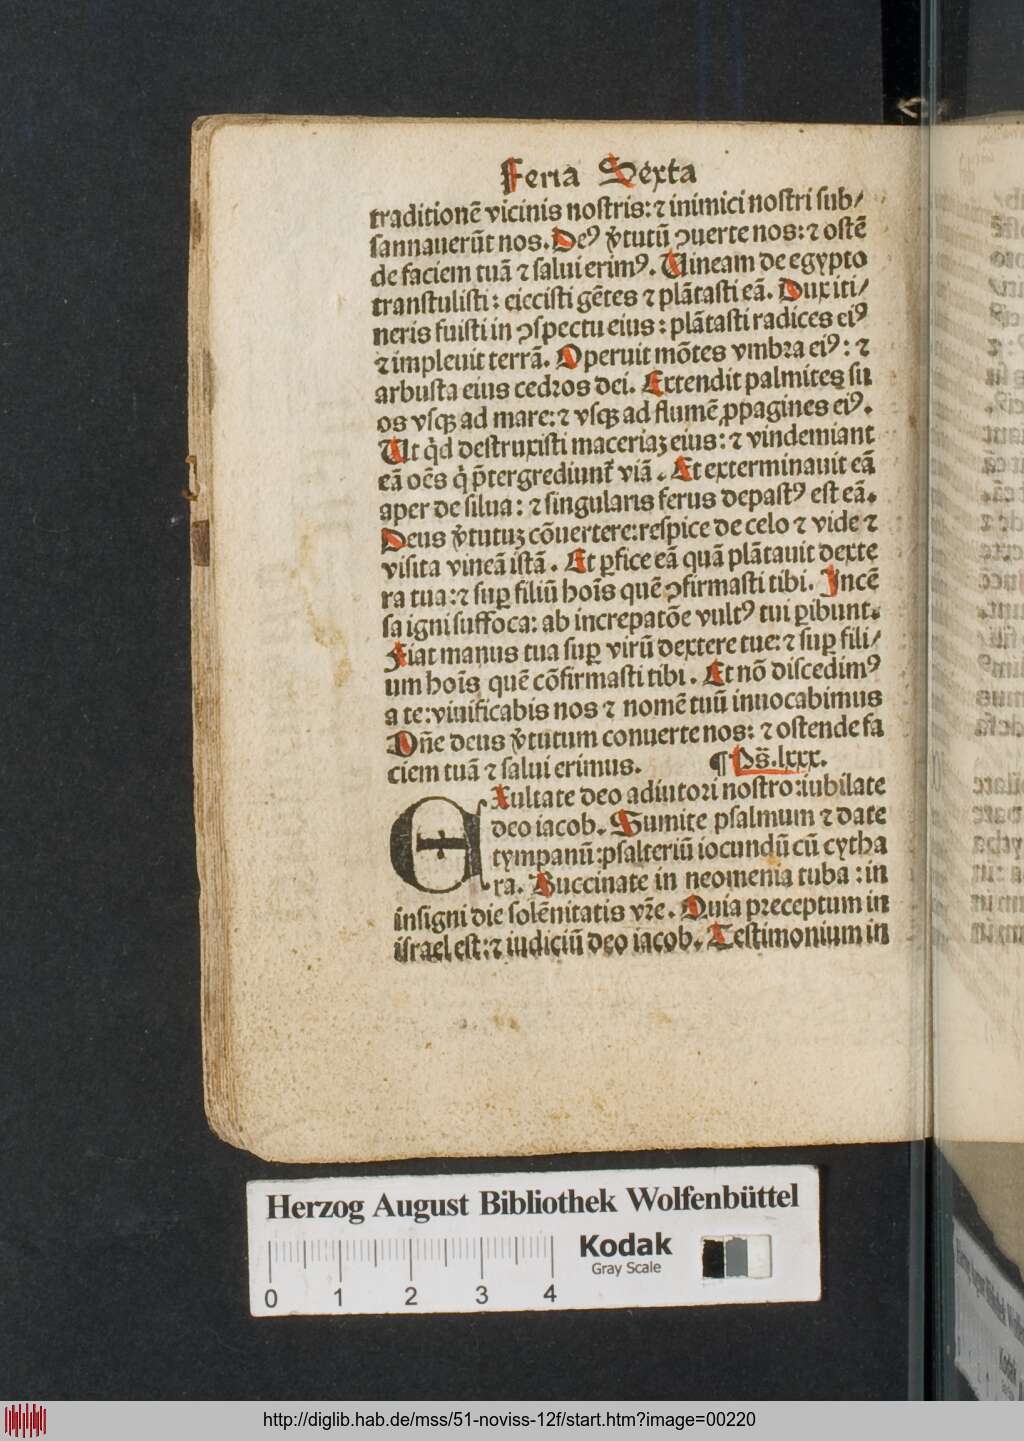 Feria Sexta
traditionē vicinis nostris: ⁊ inimici nostri sub/
sannauerūt nos. Deꝰ v̾tutū ꝯuerte nos: ⁊ ostē
de faciem tuā ⁊ salui erimꝰ. Uineam de egypto
transtulisti: eiecisti gētes ⁊ plātasti eā. Dux iti/
neris fuisti in ꝯspectu eius: plātasti radices eiꝰ
⁊ impleuit terrā. Operuit mōtes vmbra eiꝰ: ⁊
arbusta eius cedros dei. Extendit palmites su
os vsqꝫ ad mare: ⁊ vsqꝫ ad flumē ꝓpagines eiꝰ.
Ut qͥd destruxisti maceriaꝫ eius: ⁊ vindemiant
eā oēs qͥ p̄tergrediunt᷑ viā. Et exterminauit eā
aper de silua: ⁊ singularis ferus depastꝰ est eā.
Deus v̾tutuꝫ cōuertere: respice de celo ⁊ vide ⁊
visita vineā istā. Et ꝑfice eā quā plātauit dexte
ra tua: ⁊ suꝑ filiū hoīs quē ꝯfirmasti tibi. Incē
sa igni suffoca: ab increpatōe vultꝰ tui ꝑibunt.
Fiat manus tua suꝑ virū dextere tue: ⁊ suꝑ fili/
um hoīs quē cōfirmasti tibi. Et nō discedimꝰ
a te: viuificabis nos ⁊ nomē tuū inuocabimus
Dn̄e deus v̾tutum conuerte nos: ⁊ ostende fa
ciem tuā ⁊ salui erimus. ¶ Ps̄. lxxx.
EXultate deo adiutori nostro: iubilate
deo iacob. Sumite psalmum ⁊ date
tympanū: psalteriū iocundū cū cytha
ra. Buccinate in neomenia tuba: in
insigni die solēnitatis vr̄e. Quia preceptum in
israel est: ⁊ iudiciū deo iacob. Testimonium in
Herzog August Bibliothek Wolfenbüttel
Kodak
Gray Scale
0 1 2 3 4
http://diglib.hab.de/mss/51-noviss-12f/start.htm?image=00220